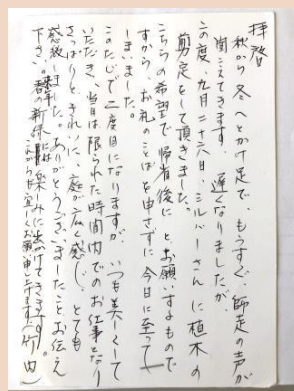 拝啓
秋から冬へとかけ足で、もうすぐ師走の声が
聞こえてきます。遅くなりましたが、
この度、九月二十六日、シルバーさんに植木の
剪定をして頂きました。
こちらの希望で帰省後に、とお願いするもので
すから、お礼のことばを申さずに今日に至って
しまいました。
このたびで二度目になりますが、いつも美しくして
いただき、当日は限られた時間内でのお仕事となり
さっぱりときれいに、庭が広く感じ、とても
感激しました。ありがとうございましたことお伝え
下さい。春の新緑には楽しみに出かけてきます。
これからも宜しくお願い申し上げます(竹内)